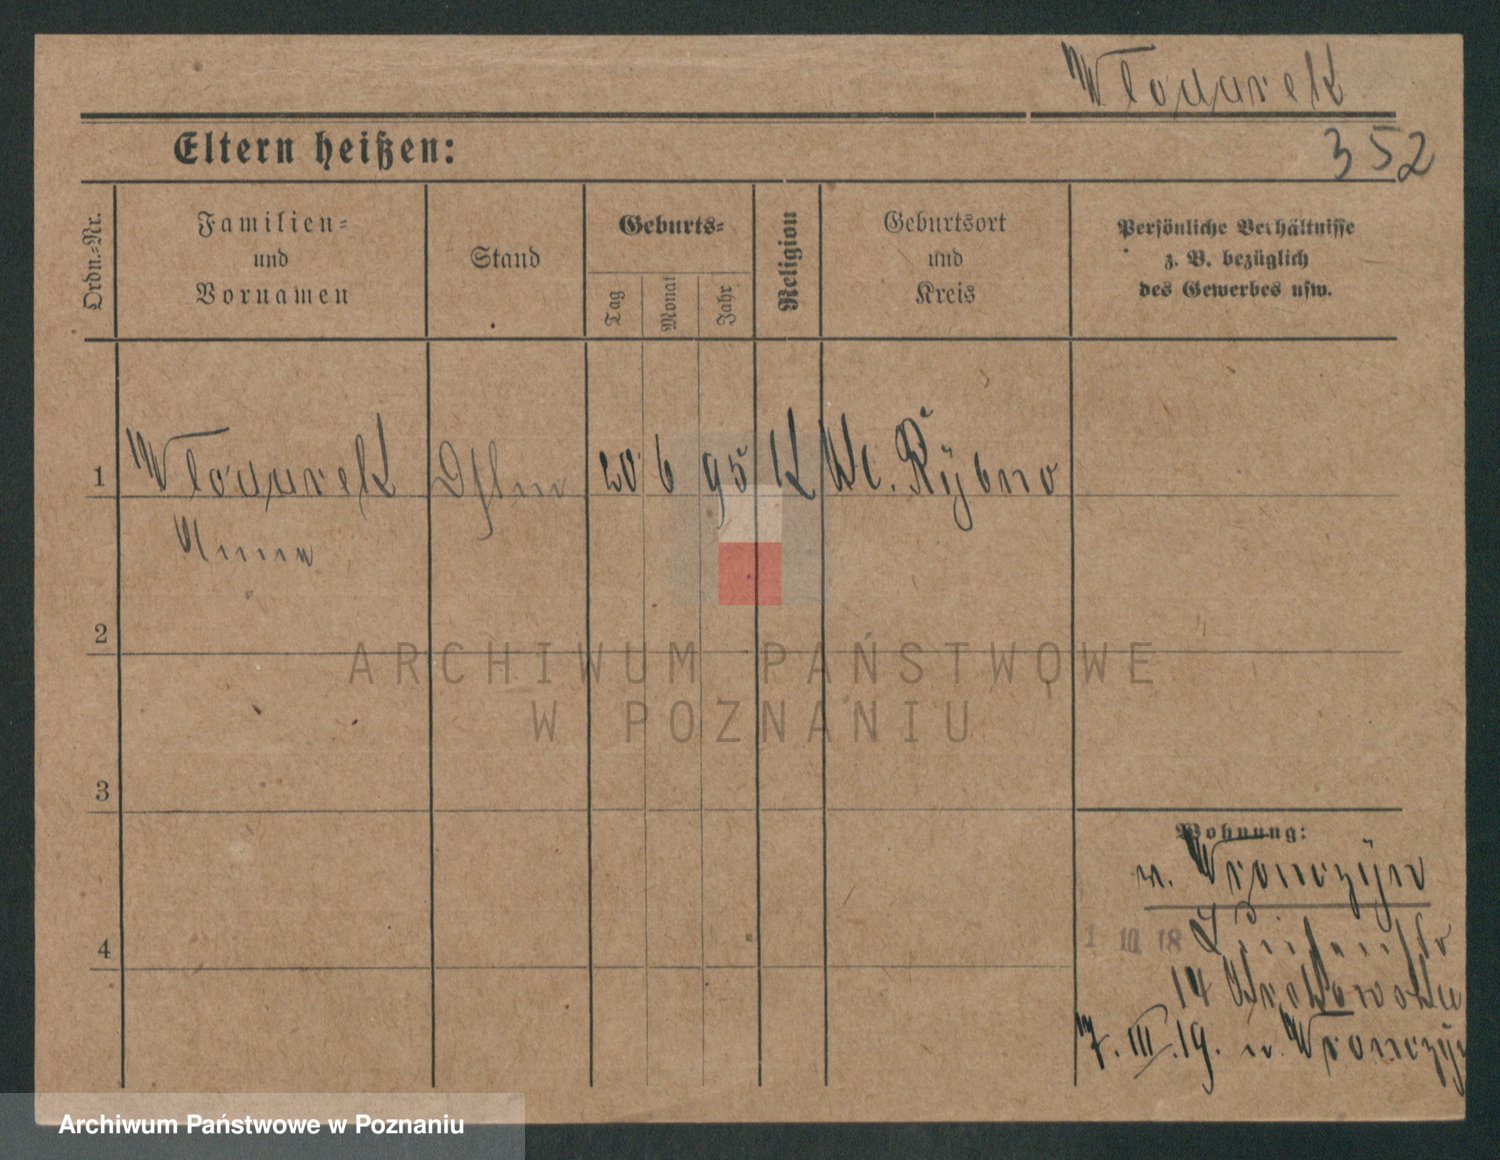 Włodarek
Eltern heißen:
352
Ordn.-Nr.
Familien-
und
Vornamen
Stand
Geburts-
Tag
Monat
Jahr
Religion
Geburtsort
und
Kreis
Persönliche Verhältnisse
z. B. bezüglich
des Gewerbes usw.
1 Włodarek 20 6 95 K Wl. Rybno
Anna
2
ARCHIWUM PAŃSTWOWE
W POZNANIU
3
Wohnung:
n. Wronczyn
4
1 III 18
14
7. III. 19. n. Wronczyn
Archiwum Państwowe w Poznaniu